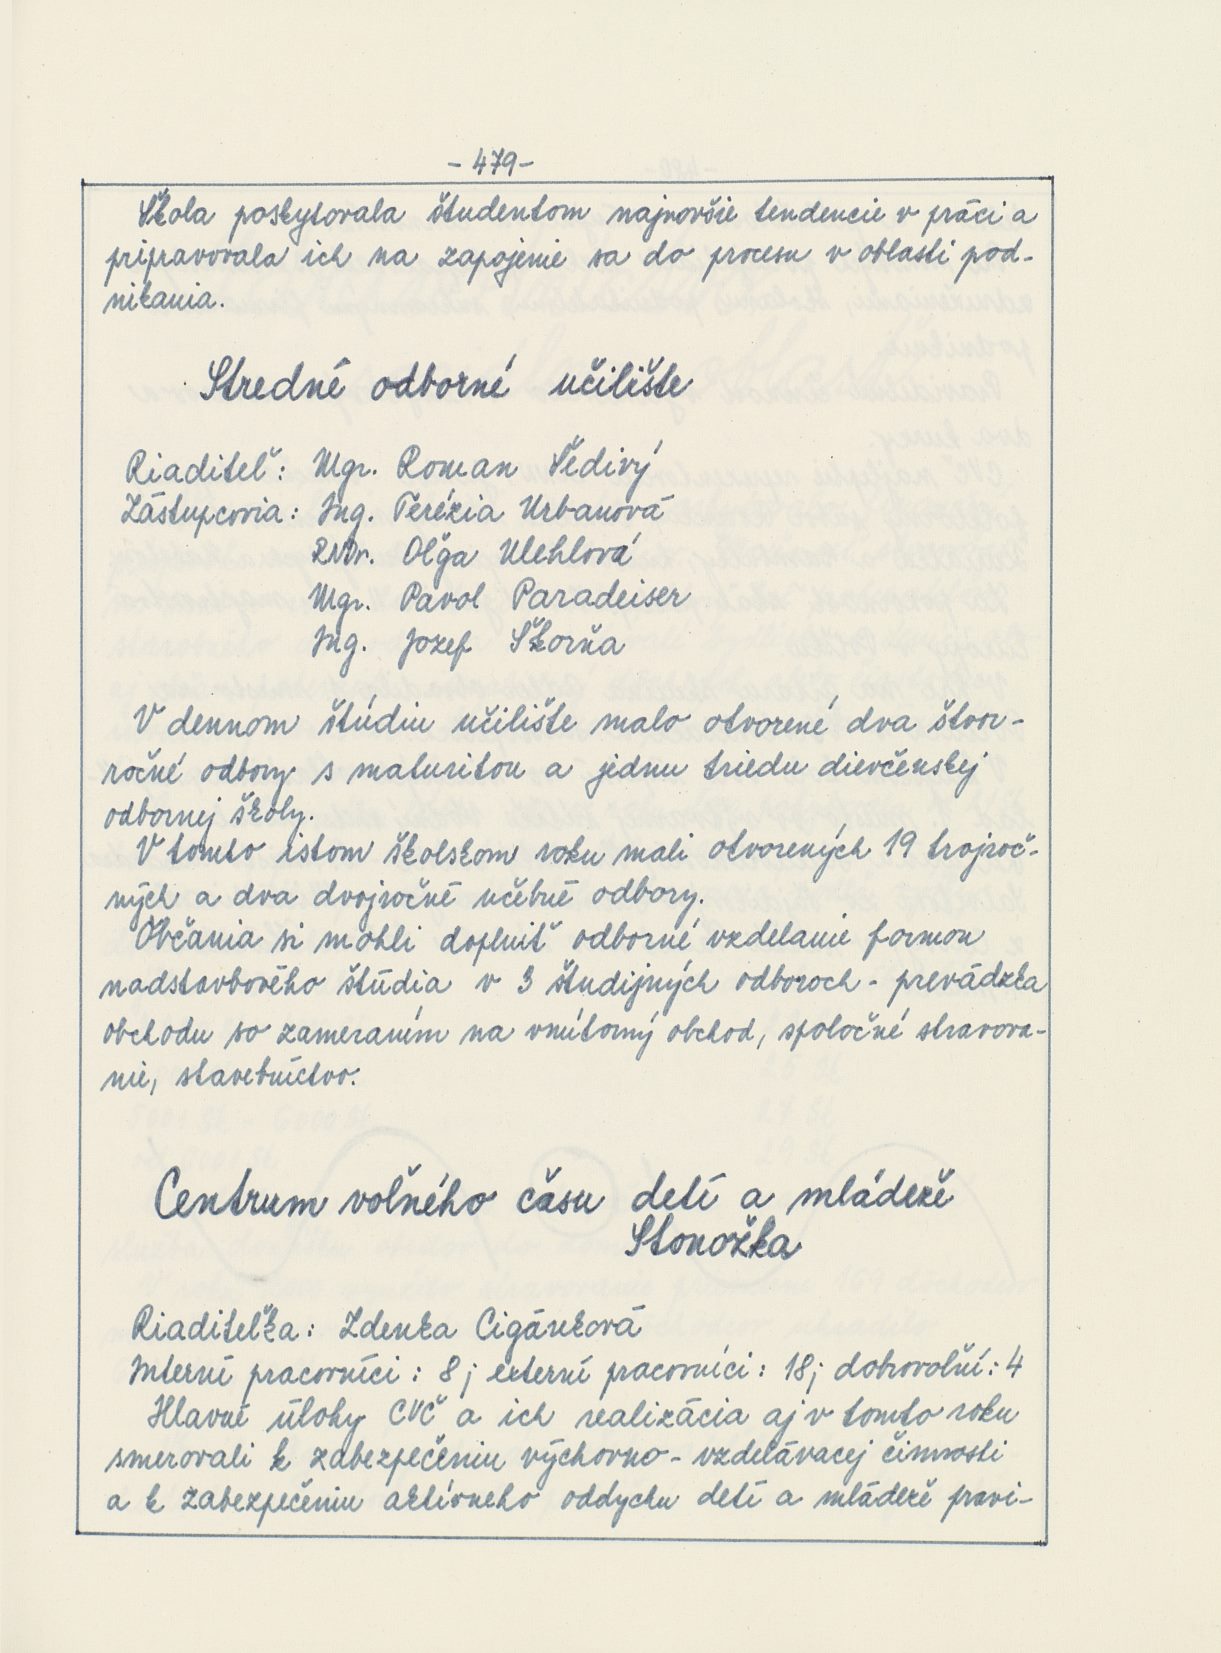 - 479 -
Škola poskytovala študentom najnovšie tendencie v práci a
pripravovala ich na zapojenie sa do procesu v oblasti pod-
nikania.
Stredné odborné učilište
Riaditeľ: Mgr. Roman Šedivý
Zástupcovia: Ing. Terézia Urbanová
RNDr. Oľga Uehlová
Mgr. Pavol Paradeiser
Ing. Jozef Škorňa
V dennom štúdiu učilište malo otvorené dva štvor-
ročné odbory s maturitou a jednu triedu dievčenskej
odbornej školy.
V tomto istom školskom roku mali otvorených 19 trojroč-
ných a dva dvojročné učebné odbory.
Občania si mohli doplniť odborné vzdelanie formou
nadstavbového štúdia v 3 študijných odboroch - prevádzka
obchodu so zameraním na vnútorný obchod, spoločné stravova-
nie, stavebníctvo.
Centrum voľného času detí a mládeže
Stonožka
Riaditeľka: Zdenka Cigánková
Interní pracovníci: 8; externí pracovníci: 18; dobrovoľní: 4
Hlavné úlohy CVČ a ich realizácia aj v tomto roku
smerovali k zabezpečeniu výchovno - vzdelávacej činnosti
a k zabezpečeniu aktívneho oddychu detí a mládeže pravi-